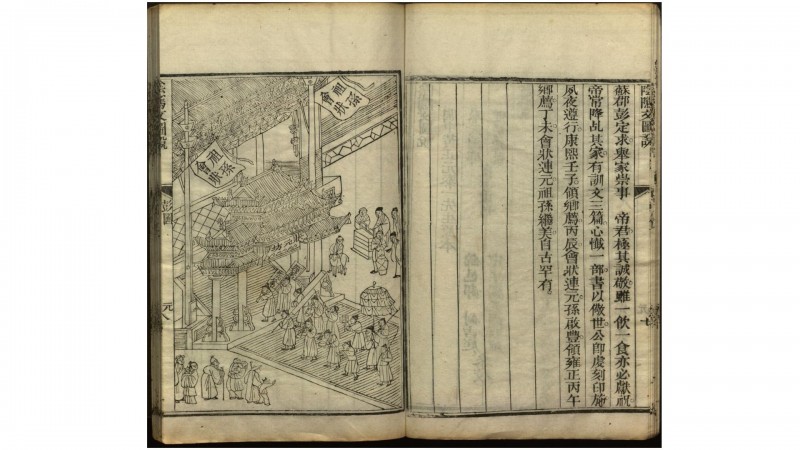 陰隲文圖說
元七
蘇郡彭定求舉家崇事　帝君極其誠敬雖一飲一食亦必獻祝
帝常降乩其家有訓文三篇心懺一部書以儆世公即虔刻印施
夙夜遵行康熙壬子領鄉薦丙辰會狀連元孫啟豐領雍正丙午
鄉薦丁未會狀連元祖孫繼美自古罕有
祖孫會狀
祖孫會狀
陰隲文圖說
彭圖
元八